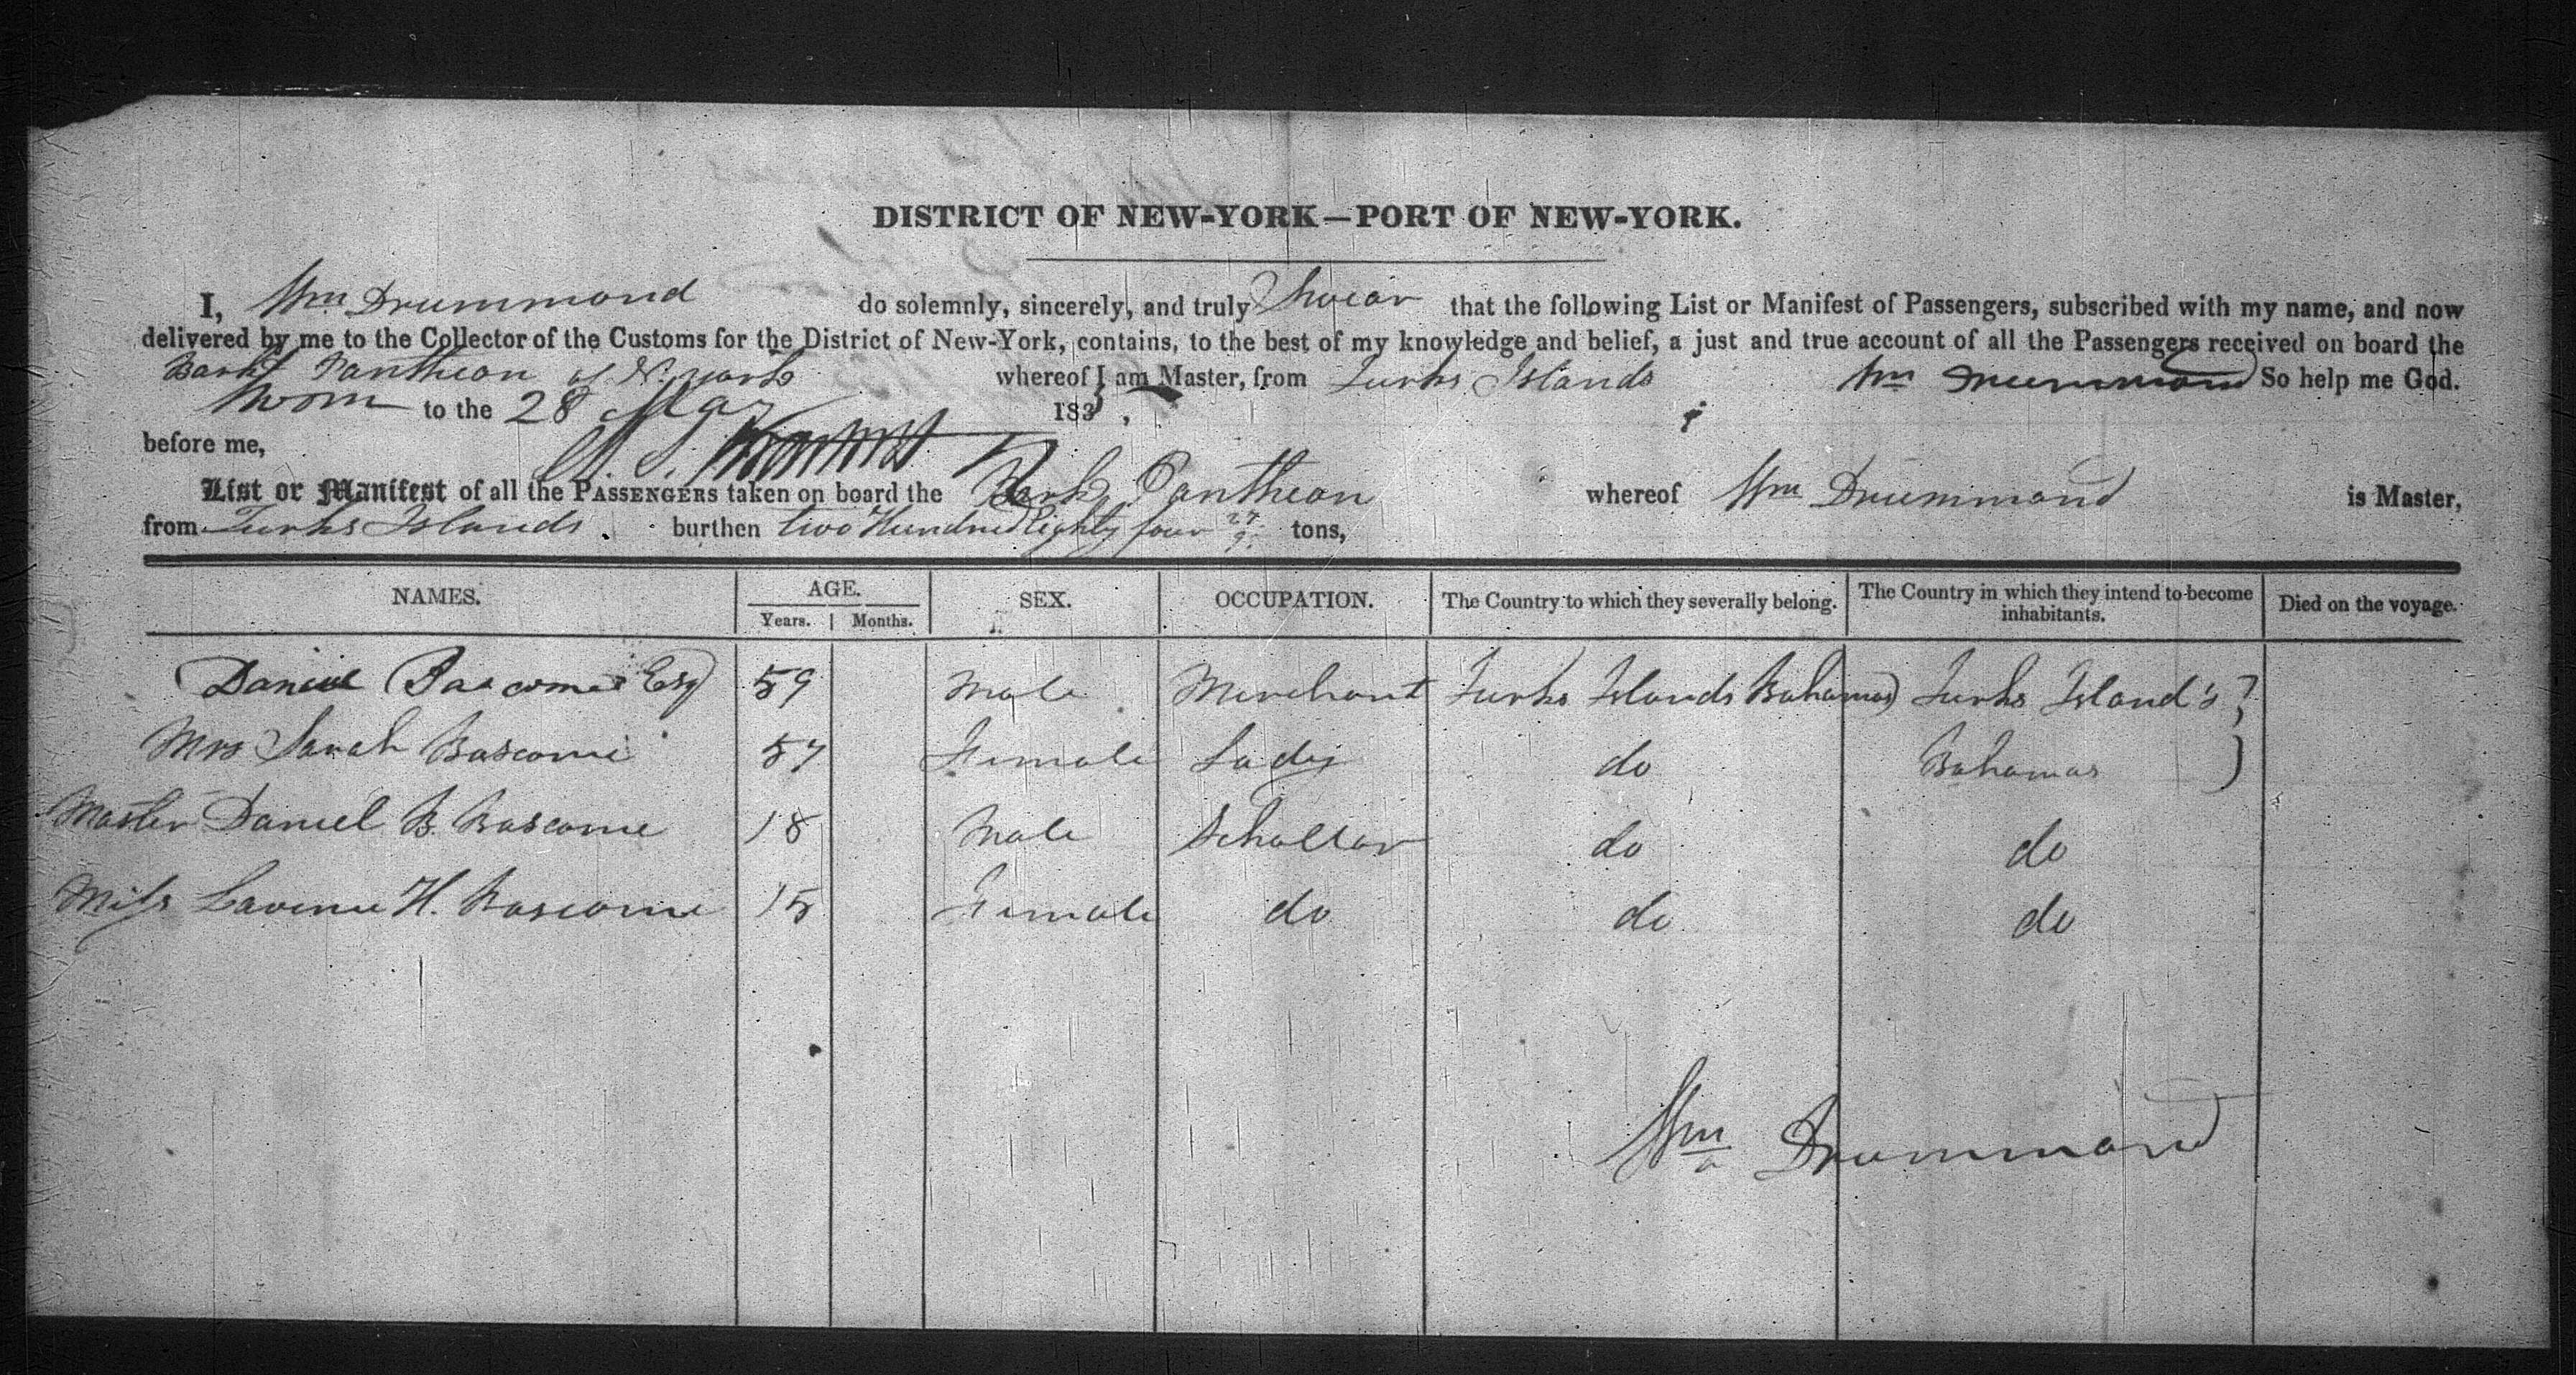 DISTRICT OF NEW-YORK—PORT OF NEW-YORK.
I, Wm Drummond do solemnly, sincerely, and truly Swear that the following List or Manifest of Passengers, subscribed with my name, and now
delivered by me to the Collector of the Customs for the District of New-York, contains, to the best of my knowledge and belief, a just and true account of all the Passengers received on board the
Bark Pantheon of N. york whereof I am Master, from Turks Islands Wm Drummond So help me God.
Sworn to the 28 May 183
before me,
List or Manifest of all the PASSENGERS taken on board the Bark Pantheon whereof Wm Drummond is Master,
from Turks Islands burthen two Hundred Eighty four tons,
NAMES. AGE. SEX. OCCUPATION. The Country to which they severally belong. The Country in which they intend to become inhabitants. Died on the voyage.
Years. Months.
Daniel Bascome Esq 59 Male Merchant Turks Islands Bahamas Turks Island's
Mrs Sarah Bascome 57 Female Lady do Bahamas
Master Daniel B. Bascome 18 Male Schollar do do
Miss Lavinia H. Bascome 15 Female do do do
Wm Drummond